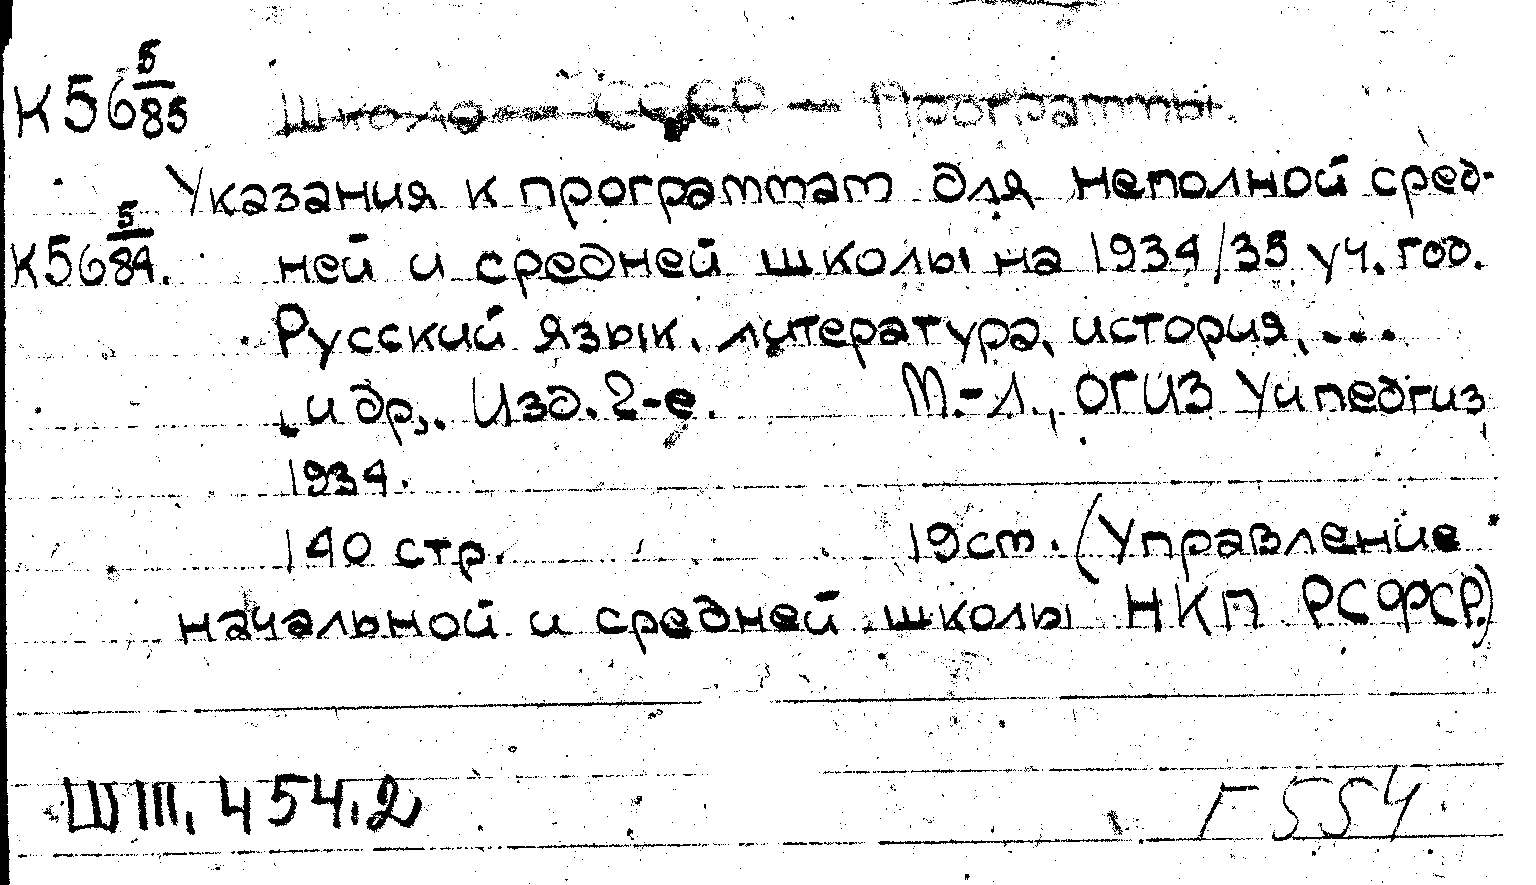 К56 5/85 Школа — СССР — Программы.
Указания к программам для неполной сред-
К56 5/84. ней и средней школы на 1934/35 уч. год.
Русский язык, литература, история, ...
и др,. Изд. 2-е. М.-Л., ОГИЗ Учпедгиз,
1934.
140 стр. 19 см. (Управление
начальной и средней школы НКП РСФСР.)
Ш III, 454.2 Г 554